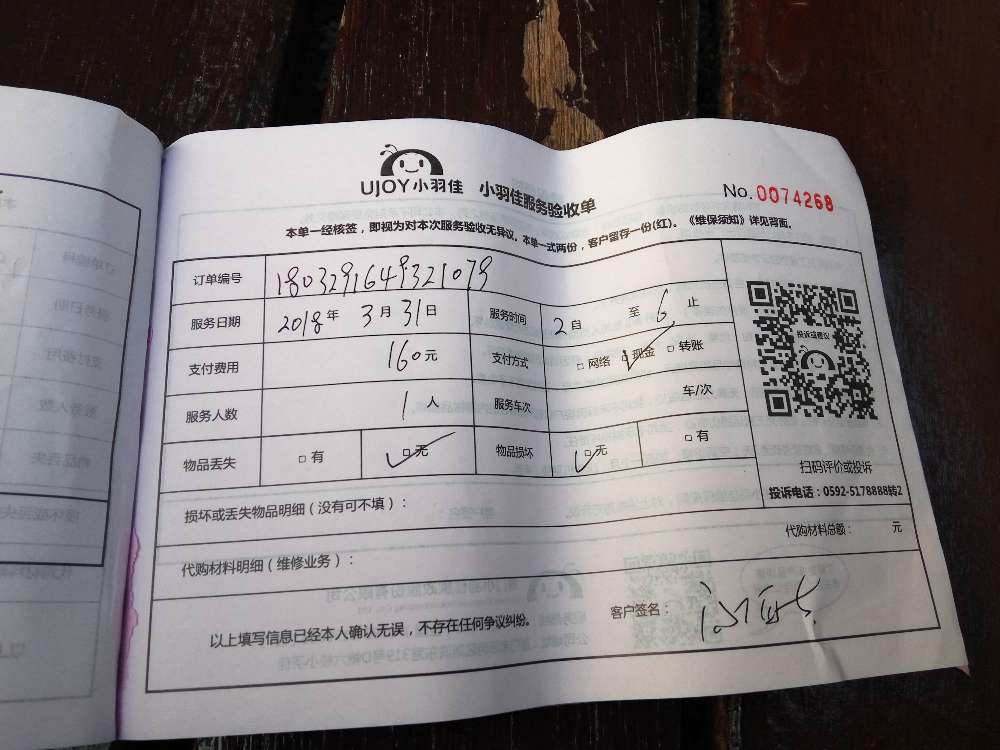 UJOY小羽佳 小羽佳服务验收单 No.0074268
本单一经核签，即视为对本次服务验收无异议。本单一式两份，客户留存一份(红)。《维保须知》详见背面。
订单编号 1803291649321079
服务日期 2018年 3月 31日 服务时间 2自 至6止
支付费用 160元 支付方式 □网络 □现金 □转账
投诉或建议
服务人数 1人 服务车次 车/次
物品丢失 □有 □无 物品损坏 □无 □有
扫码评价或投诉
投诉电话：0592-5178888转2
损坏或丢失物品明细（没有可不填）：
代购材料总额： 元
代购材料明细（维修业务）：
以上填写信息已经本人确认无误，不存在任何争议纠纷。 客户签名：